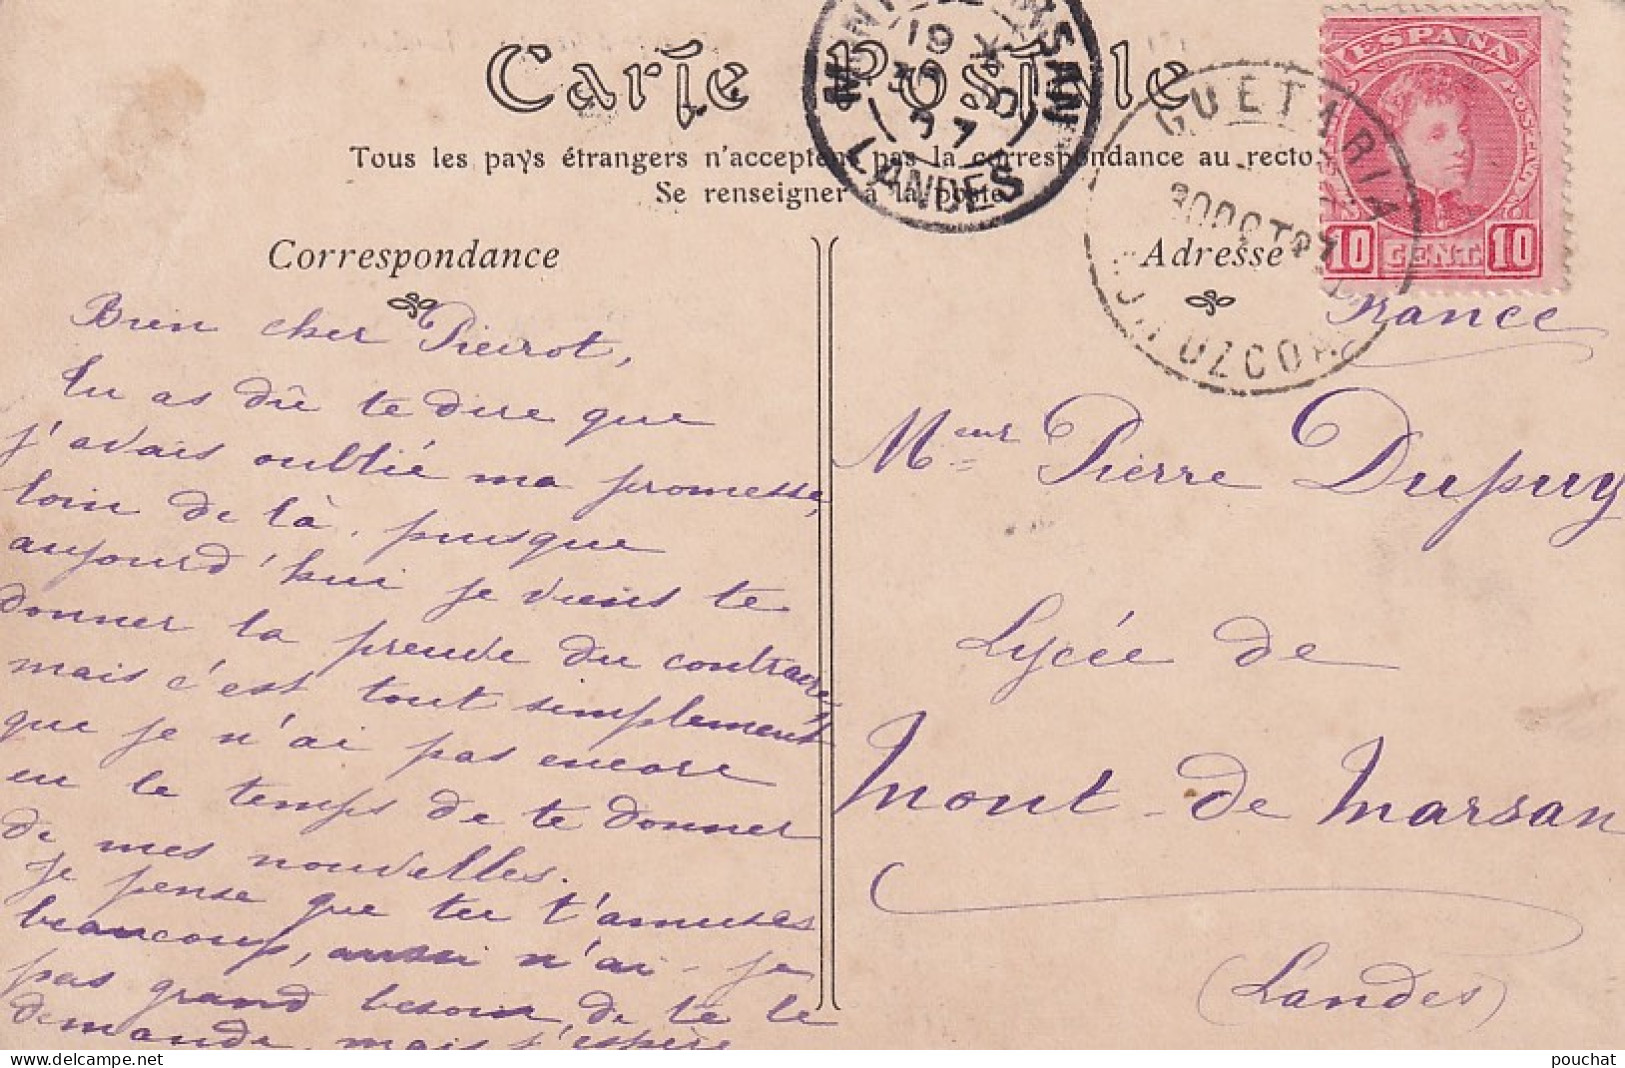 Carte Postale
Tous les pays étrangers n'acceptent pas la correspondance au recto.
Se renseigner à la poste
Correspondance
Adresse
ESPAÑA
10 CENT. 10
GUETARIA
30 OCT 07
GUIPUZCOA
MARSAN
LANDES
Bien cher Pierrot,
tu as dû te dire que
j'avais oublié ma promesse,
loin de là, puisque
aujourd'hui je viens te
donner la preuve du contraire
mais c'est tout simplement
que je n'ai pas encore
eu le temps de te donner
de mes nouvelles.
je pense que tu t'amuses
beaucoup, aussi n'ai-je
pas grand besoin de te le
demande, mais j'espère
France
Mseur Pierre Dupuy
Lycée de
Mont-de-Marsan
(Landes)
pouchat